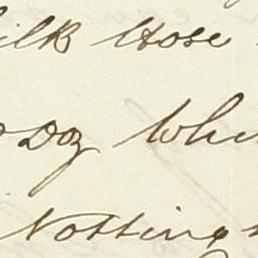 Silk Hose
Doz Whi
Notting